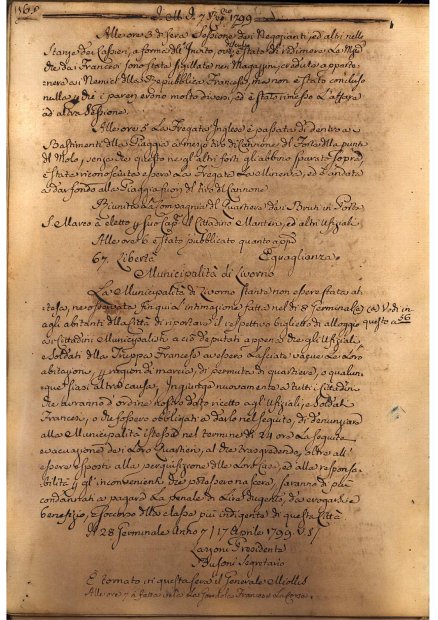 Alle ore 3 di sera Sessione dei Negozianti, ed altri nelle
Stanze dei Cassieri, a forma dell'Invito, ove è stato di
dai Francesi sono state sigillate nei Magazzini, credute apparte-
nere a' Nemici della Repubblica Francese, ma non è stato concluso
nulla, e i pareri erono molto diversi, ed è stato rimesso l'affare
ad altra Sessione.
Alle ore 5 La Fregata Inglese è passata di dentro a
Bastimenti della Piaggia a mezzo tiro di Cannone del della punta
del Molo, senza che questo ne gl'altri forti gli abbino sparato sopra,
è stata riconosciuta essere La Fregata La Minerva, ed è andata
a dar fondo alla Piaggia fuori del tiro di Cannone.
Riunita La Compagnia del Quartiere dei Bruti in Porta
S. Marco à eletto p suo Cap. il Cittadino Manteri, ed altri Ufiziali
Alle ore 6 è stato pubblicato quanto app.
67. Libertà Eguaglianza
Municipalità di Livorno
La Municipalità di Livorno stante non essere stata at-
tesa, ne osservata fin qui L'intimazione fatta nel dì 8 Germinale (a) (a) Vedi in
agli abitanti della Città di riportare il respettivo biglietto di alloggio questo a 56
ai Cittadini Municipalisti a ciò deputati appena che gli Ufiziali
e Soldati della Truppa Francese avessero Lasciate vacue Le Loro
abitazioni, p ragion di marcia, di permuta di quartiere, o qualun-
que siasi altra causa; Ingiunge nuovamente a tutti i Cittadini
che avranno d'ordine nostro dato ricetto agli Ufiziali, e Soldati
Francesi, o che fossero obbligati a darlo nel seguito, di denunziare
alla Municipalità istessa nel termine di 24 ore La seguita
evacuazione dei Loro Quartieri, al che trasgredendo, oltre all'
essere esposti alla perquisizione delle Loro Case, ed alla responsa-
bilità p gl'inconvenienti che potessero nascere, saranno di più
condannati a pagare La penale di Lire dugento da erogarsi a
benefizio, e soccorso della classe più indigente di questa Città.
A 28 Germinale Anno 7 / 17 Aprile 1799. V. S /
Presidente
Busoni Segretario
È tornato in questa sera il Generale Miollis
Alle ore 7 è